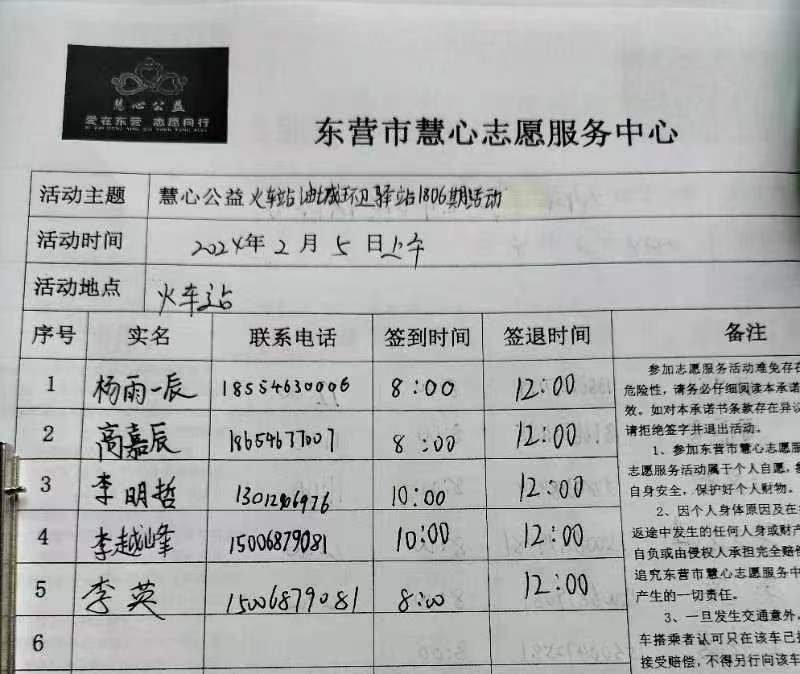 慧心公益
爱在东营 志愿同行
东营市慧心志愿服务中心
活动主题 慧心公益火车站油城环卫驿站1806期活动
活动时间 2024年2月5日上午
活动地点 火车站
序号 实名 联系电话 签到时间 签退时间 备注
1 杨雨一辰 18554630006 8:00 12:00
2 高嘉辰 18654677007 8:00 12:00
3 李明哲 13012906976 10:00 12:00
4 李越峰 15006879081 10:00 12:00
5 李英 15006879081 8:00 12:00
6
参加志愿服务活动难免存在
危险性，请务必仔细阅读本承诺
效。如对本承诺书条款存在异议
请拒绝签字并退出活动。
1、参加东营市慧心志愿服
志愿服务活动属于个人自愿，参
自身安全，保护好个人财物。
2、因个人身体原因及在
返途中发生的任何人身或财产
自负或由侵权人承担完全赔偿
追究东营市慧心志愿服务中
产生的一切责任。
3、一旦发生交通意外，
车搭乘者认可只在该车已
接受赔偿，不得另行向该车